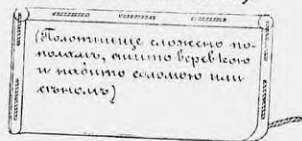 (Полотнище сложено по-
поламъ, сшито веревкою
и набито соломою или
сѣномъ)